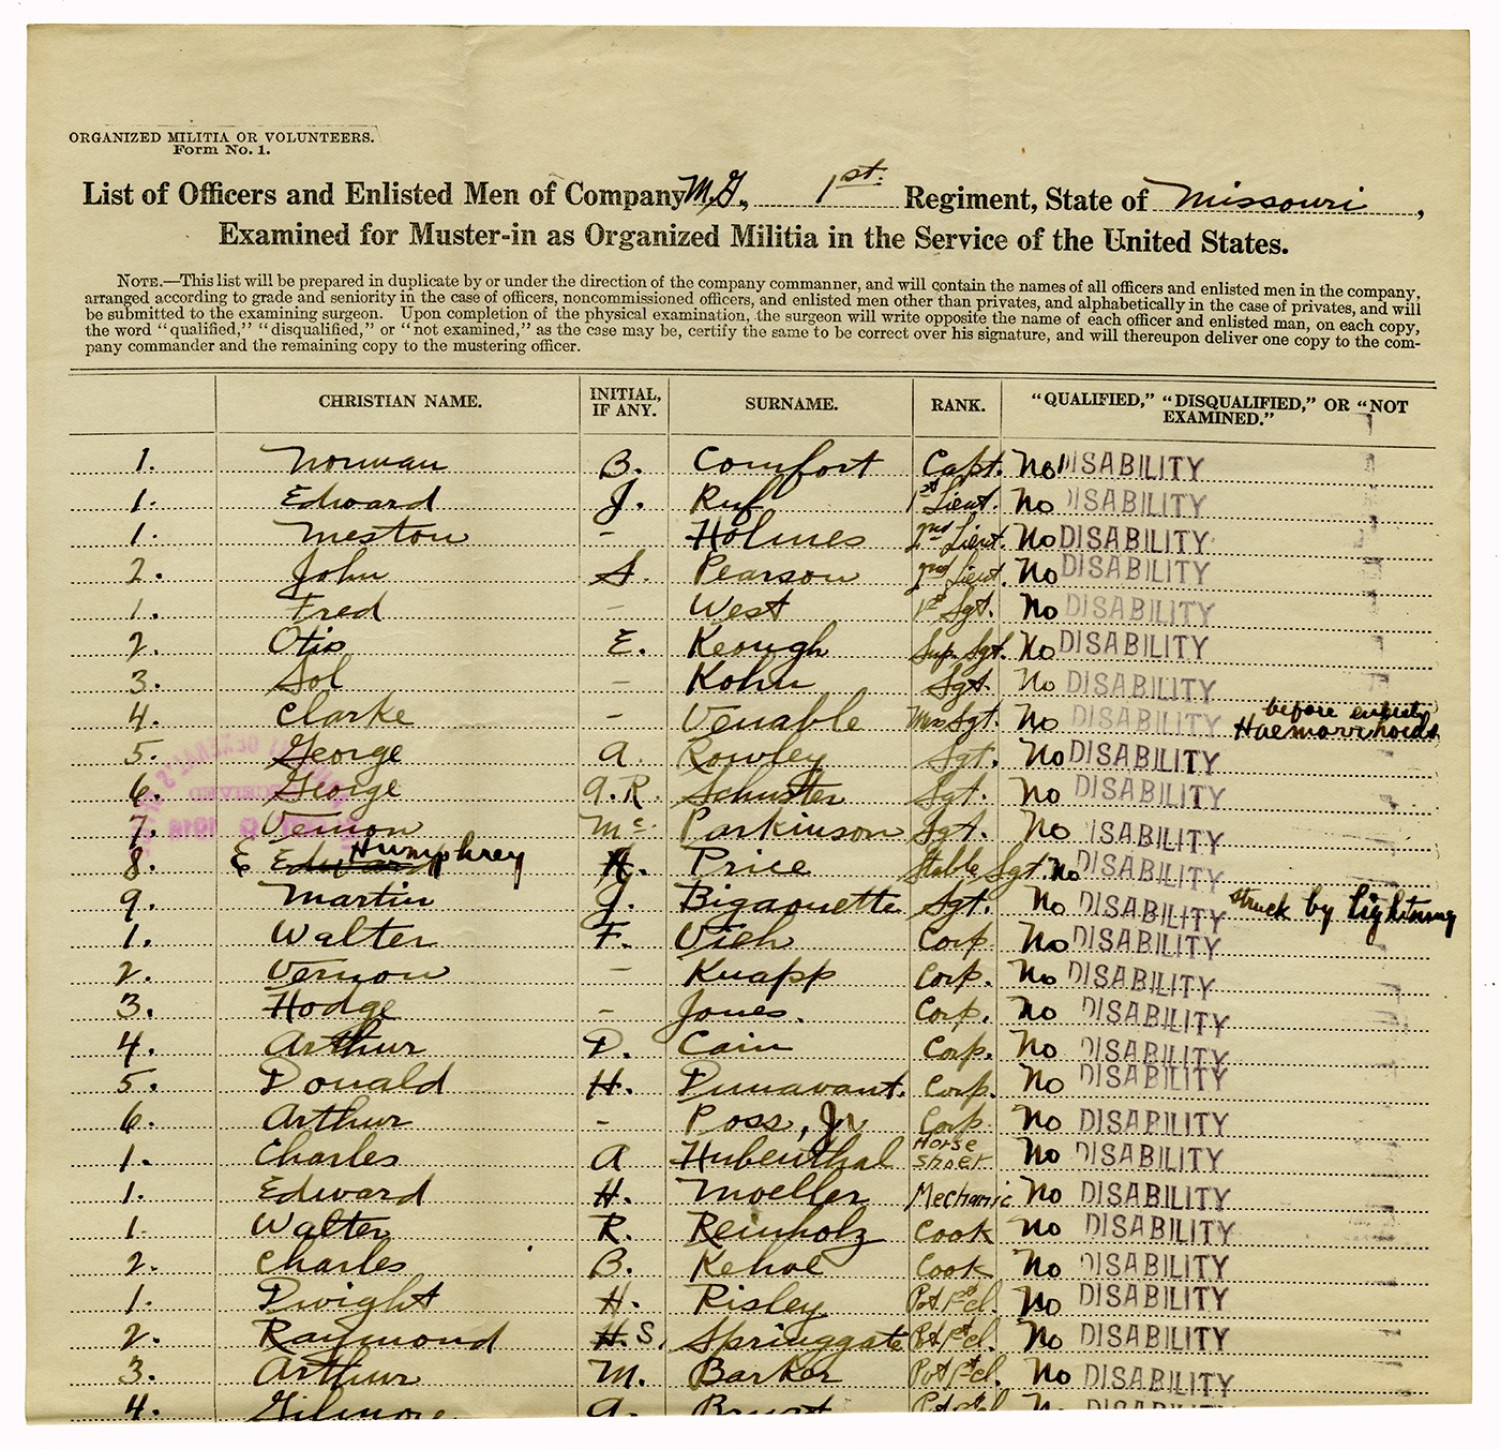 ORGANIZED MILITIA OR VOLUNTEERS.
Form No. 1.
List of Officers and Enlisted Men of Company M.G., 1st. Regiment, State of Missouri,
Examined for Muster-in as Organized Militia in the Service of the United States.
NOTE.—This list will be prepared in duplicate by or under the direction of the company commanner, and will contain the names of all officers and enlisted men in the company,
arranged according to grade and seniority in the case of officers, noncommissioned officers, and enlisted men other than privates, and alphabetically in the case of privates, and will
be submitted to the examining surgeon. Upon completion of the physical examination, the surgeon will write opposite the name of each officer and enlisted man, on each copy,
the word "qualified," "disqualified," or "not examined," as the case may be, certify the same to be correct over his signature, and will thereupon deliver one copy to the com-
pany commander and the remaining copy to the mustering officer.
CHRISTIAN NAME. INITIAL, IF ANY. SURNAME. RANK. "QUALIFIED," "DISQUALIFIED," OR "NOT EXAMINED."
1. Norman B. Comfort Capt. No DISABILITY
1. Edward J. Ruf 1st Lieut. No DISABILITY
1. Meston - Holmes 2nd Lieut. No DISABILITY
2. John S. Pearson 2nd Lieut. No DISABILITY
1. Fred - West 1st Sgt. No DISABILITY
2. Otis E. Keough Sup. Sgt. No DISABILITY
3. Sol - Kohn Sgt. No DISABILITY
4. Clarke - Venable Mess Sgt. No DISABILITY before enlisting Haemorrhoids
5. George A. Rowley Sgt. No DISABILITY
6. George A.R. Schuster Sgt. No DISABILITY
7. Vernon Mc. Parkinson Sgt. No DISABILITY
8. E Edward Humphrey H. Price Stable Sgt. No DISABILITY
9. Martin J. Bigaouette Sgt. No DISABILITY struck by lightning
1. Walter F. Vieh Corp. No DISABILITY
2. Vernon - Knapp Corp. No DISABILITY
3. Hodge - Jones. Corp. No DISABILITY
4. Arthur D. Cain Corp. No DISABILITY
5. Donald H. Dunavant. Corp. No DISABILITY
6. Arthur - Poss, Jr Corp. No DISABILITY
1. Charles A Hubenthal Horse Shoer No DISABILITY
1. Edward H. Moeller Mechanic No DISABILITY
1. Walter R. Reinholz Cook No DISABILITY
2. Charles B. Kehoe Cook No DISABILITY
1. Dwight H. Risley Pvt 1st cl. No DISABILITY
2. Raymond H. S. Springgate Pvt 1st cl. No DISABILITY
3. Arthur M. Barker Pvt 1st cl. No DISABILITY
4. Gilmore